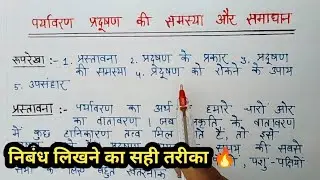 पर्यावरण प्रदूषण की समस्या और समाधान
रूपरेखा :- 1. प्रस्तावना 2. प्रदूषण के प्रकार 3. प्रदूषण
की समस्या 4. प्रदूषण को रोकने के उपाय
5. उपसंहार
प्रस्तावना :- पर्यावरण का अर्थ हमारे चारो ओर
का वातावरण। जब प्रकृति के वातावरण
में कुछ हानिकारण तत्व मिल जाते है, तो इसे
निबंध लिखने का सही तरीका 🔥
पशु-पक्षियों